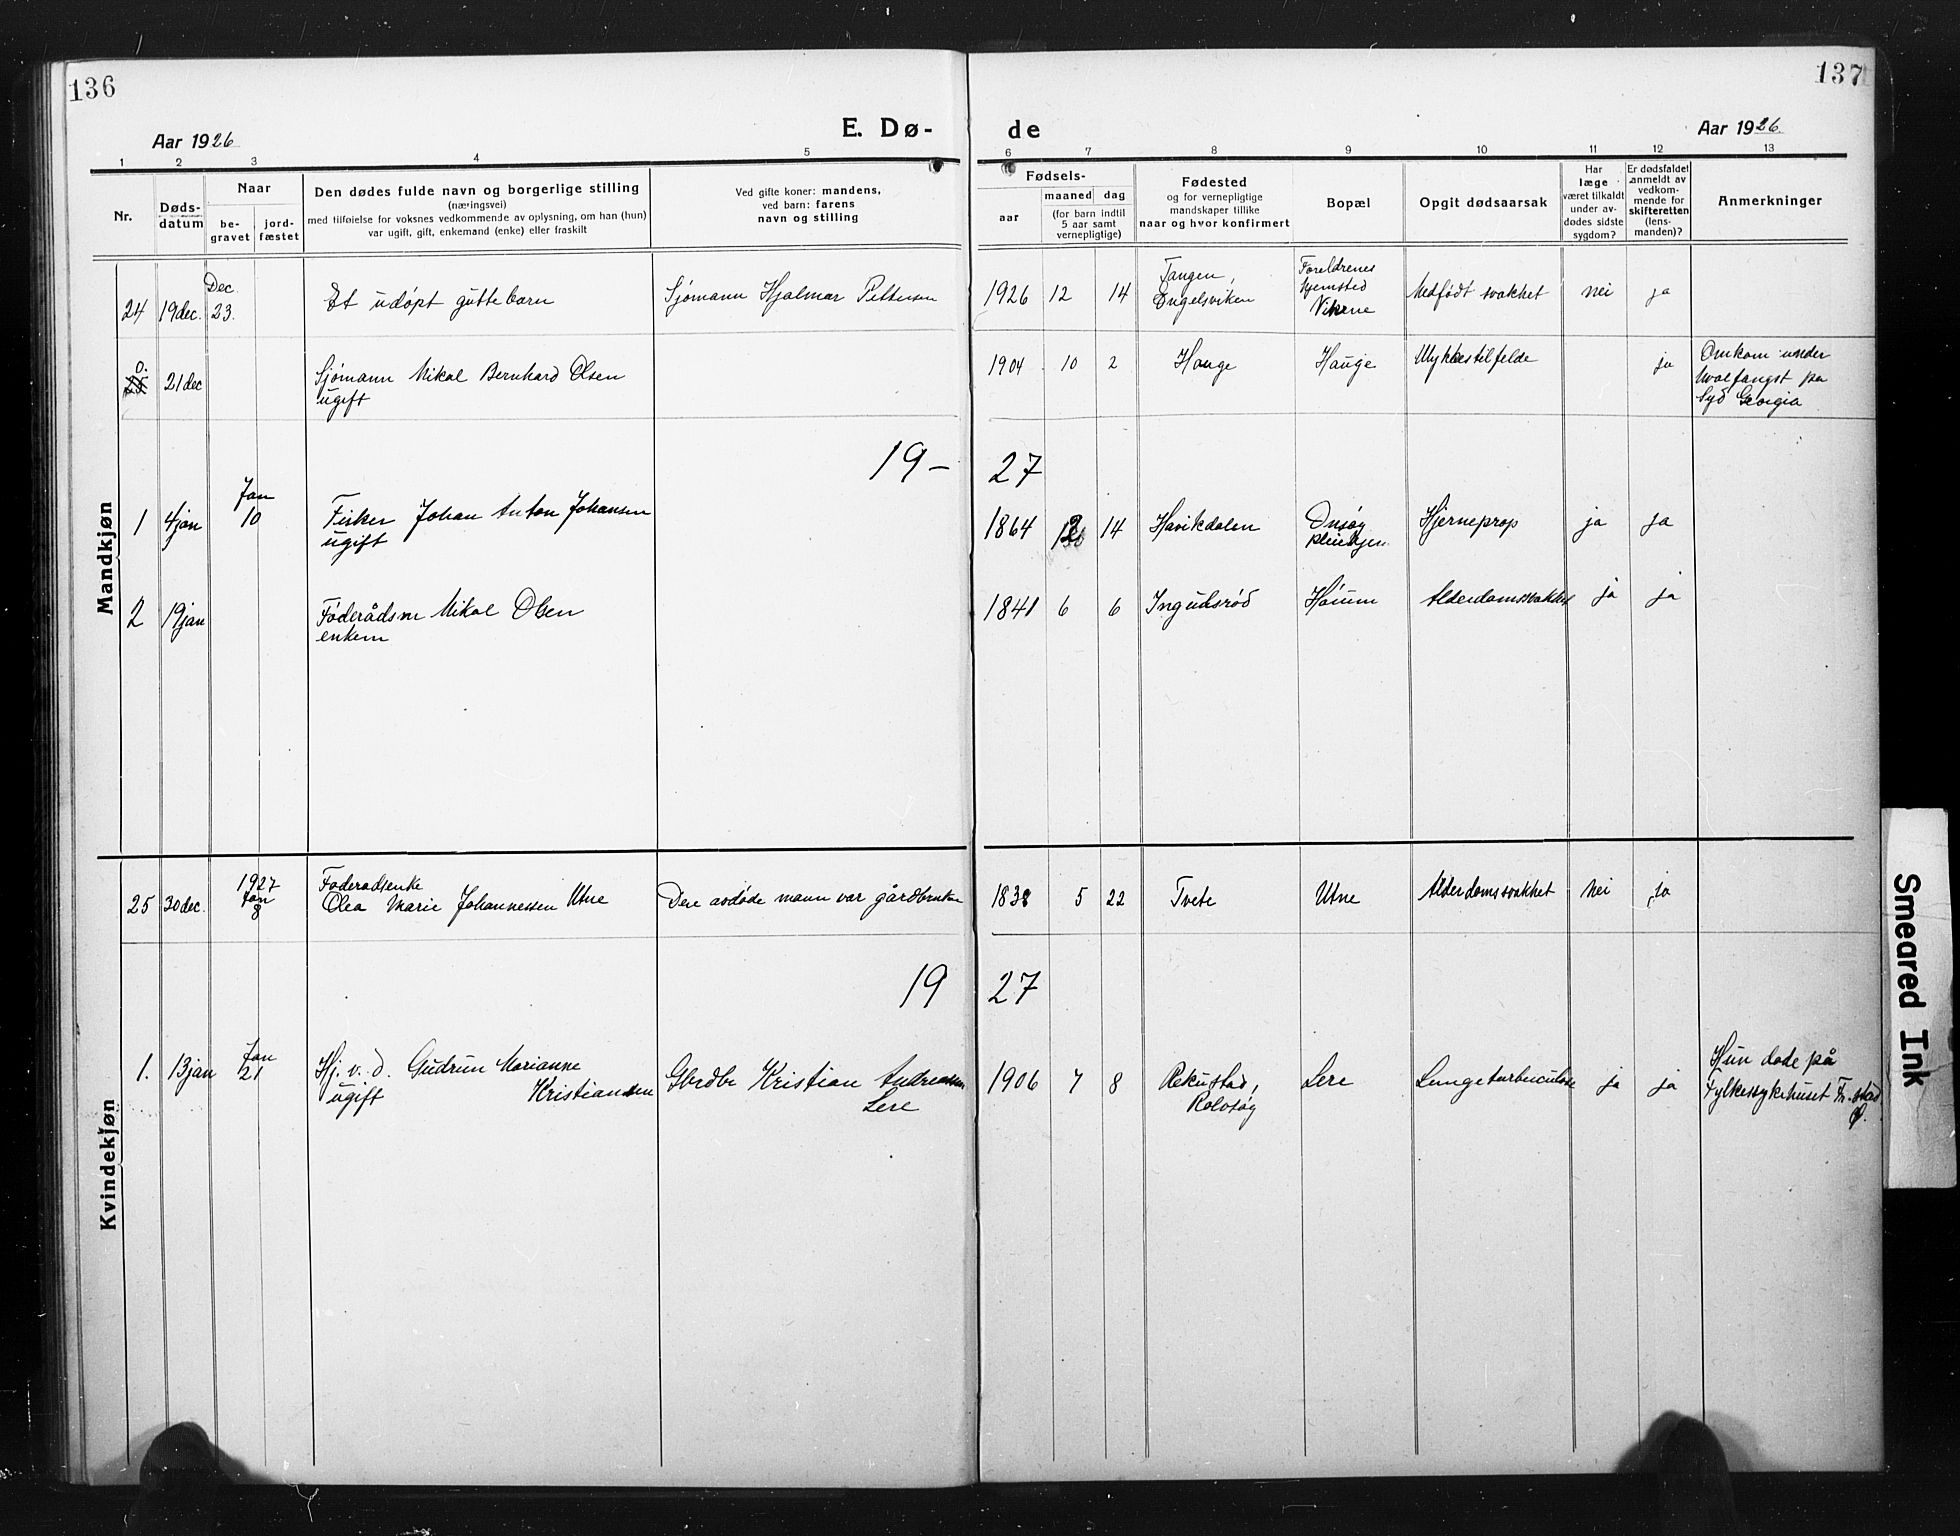 136
137
Aar 1926
E. Dø-
de
Aar 1926.
1 2 3 4 5 6 7 8 9 10 11 12 13
Nr.
Døds-
datum
Naar
be-
gravet
jord-
fæstet
Den dødes fulde navn og borgerlige stilling
(næringsvei)
med tilføielse for voksnes vedkommende av oplysning, om han (hun)
var ugift, gift, enkemand (enke) eller fraskilt
Ved gifte koner: mandens,
ved barn: farens
navn og stilling
Fødsels-
aar
maaned
dag
(for barn indtil
5 aar samt
vernepligtige)
Fødested
og for vernepligtige
mandskaper tillike
naar og hvor konfirmert
Bopæl
Opgit dødsaarsak
Har
læge
været tilkaldt
under av-
dødes sidste
sygdom?
Er dødsfaldet
anmeldt av
vedkom-
mende for
skifteretten
(lens-
manden)?
Anmerkninger
Mandkjøn
24
19 dec.
Dec.
23.
Et udøpt guttebarn
Sjømann Hjalmar Pettersen
1926
12
14
Tangen,
Engelsviken
Foreldrenes
hjemsted
Vikene
Medfødt svakhet
nei
ja
0.
21 dec
Sjømann Mikal Bernhard Olsen
ugift
1904
10
2
Hauge
Hauge
Ulykkestilfelde
ja
Omkom under
hvalfangst på
Syd Georgia
19 - 27
1
4 jan
Jan
10
Fisker Johan Anton Johansen
ugift
1864
12
14
Havikdalen
Onsøy
pleiehjem
Hjerneprop
ja
ja
2
19 jan
Føderådsm Mikal Olsen
enkem
1841
6
6
Ingulsrød
Haum
Alderdomssvakhet
ja
ja
Kvindekjøn
25
30 dec.
1927
Jan
8
Føderadsenke
Olea Marie Johannessen Utne
Den avdøde mann var gårdbruker
1838
5
22
Tvete
Utne
Alderdomssvakhet
nei
ja
19 27
1.
13 jan
Jan
21
Hj. v. d. Gudrun Marianne
ugift Kristiansen
Gbrdbr Kristian Andreassen
Lere
1906
7
8
Rekustad,
Rolvsøy
Lere
Lungetuberculose
ja
ja
Hun døde på
Fylkessykehuset Fr.stad
Ø.
Smeared Ink